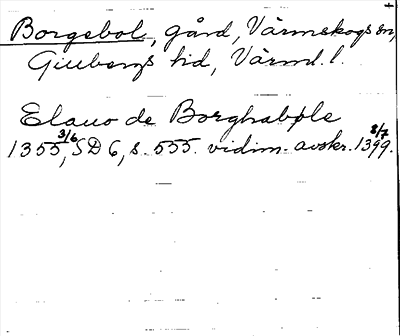 Borgebol, gård, Värmskogs sn,
Gillbergs hd, Värml. l.
Elauo de Borghabøle
1355 3/6, SD 6, s. 555. vidim. avskr. 1399 8/7.